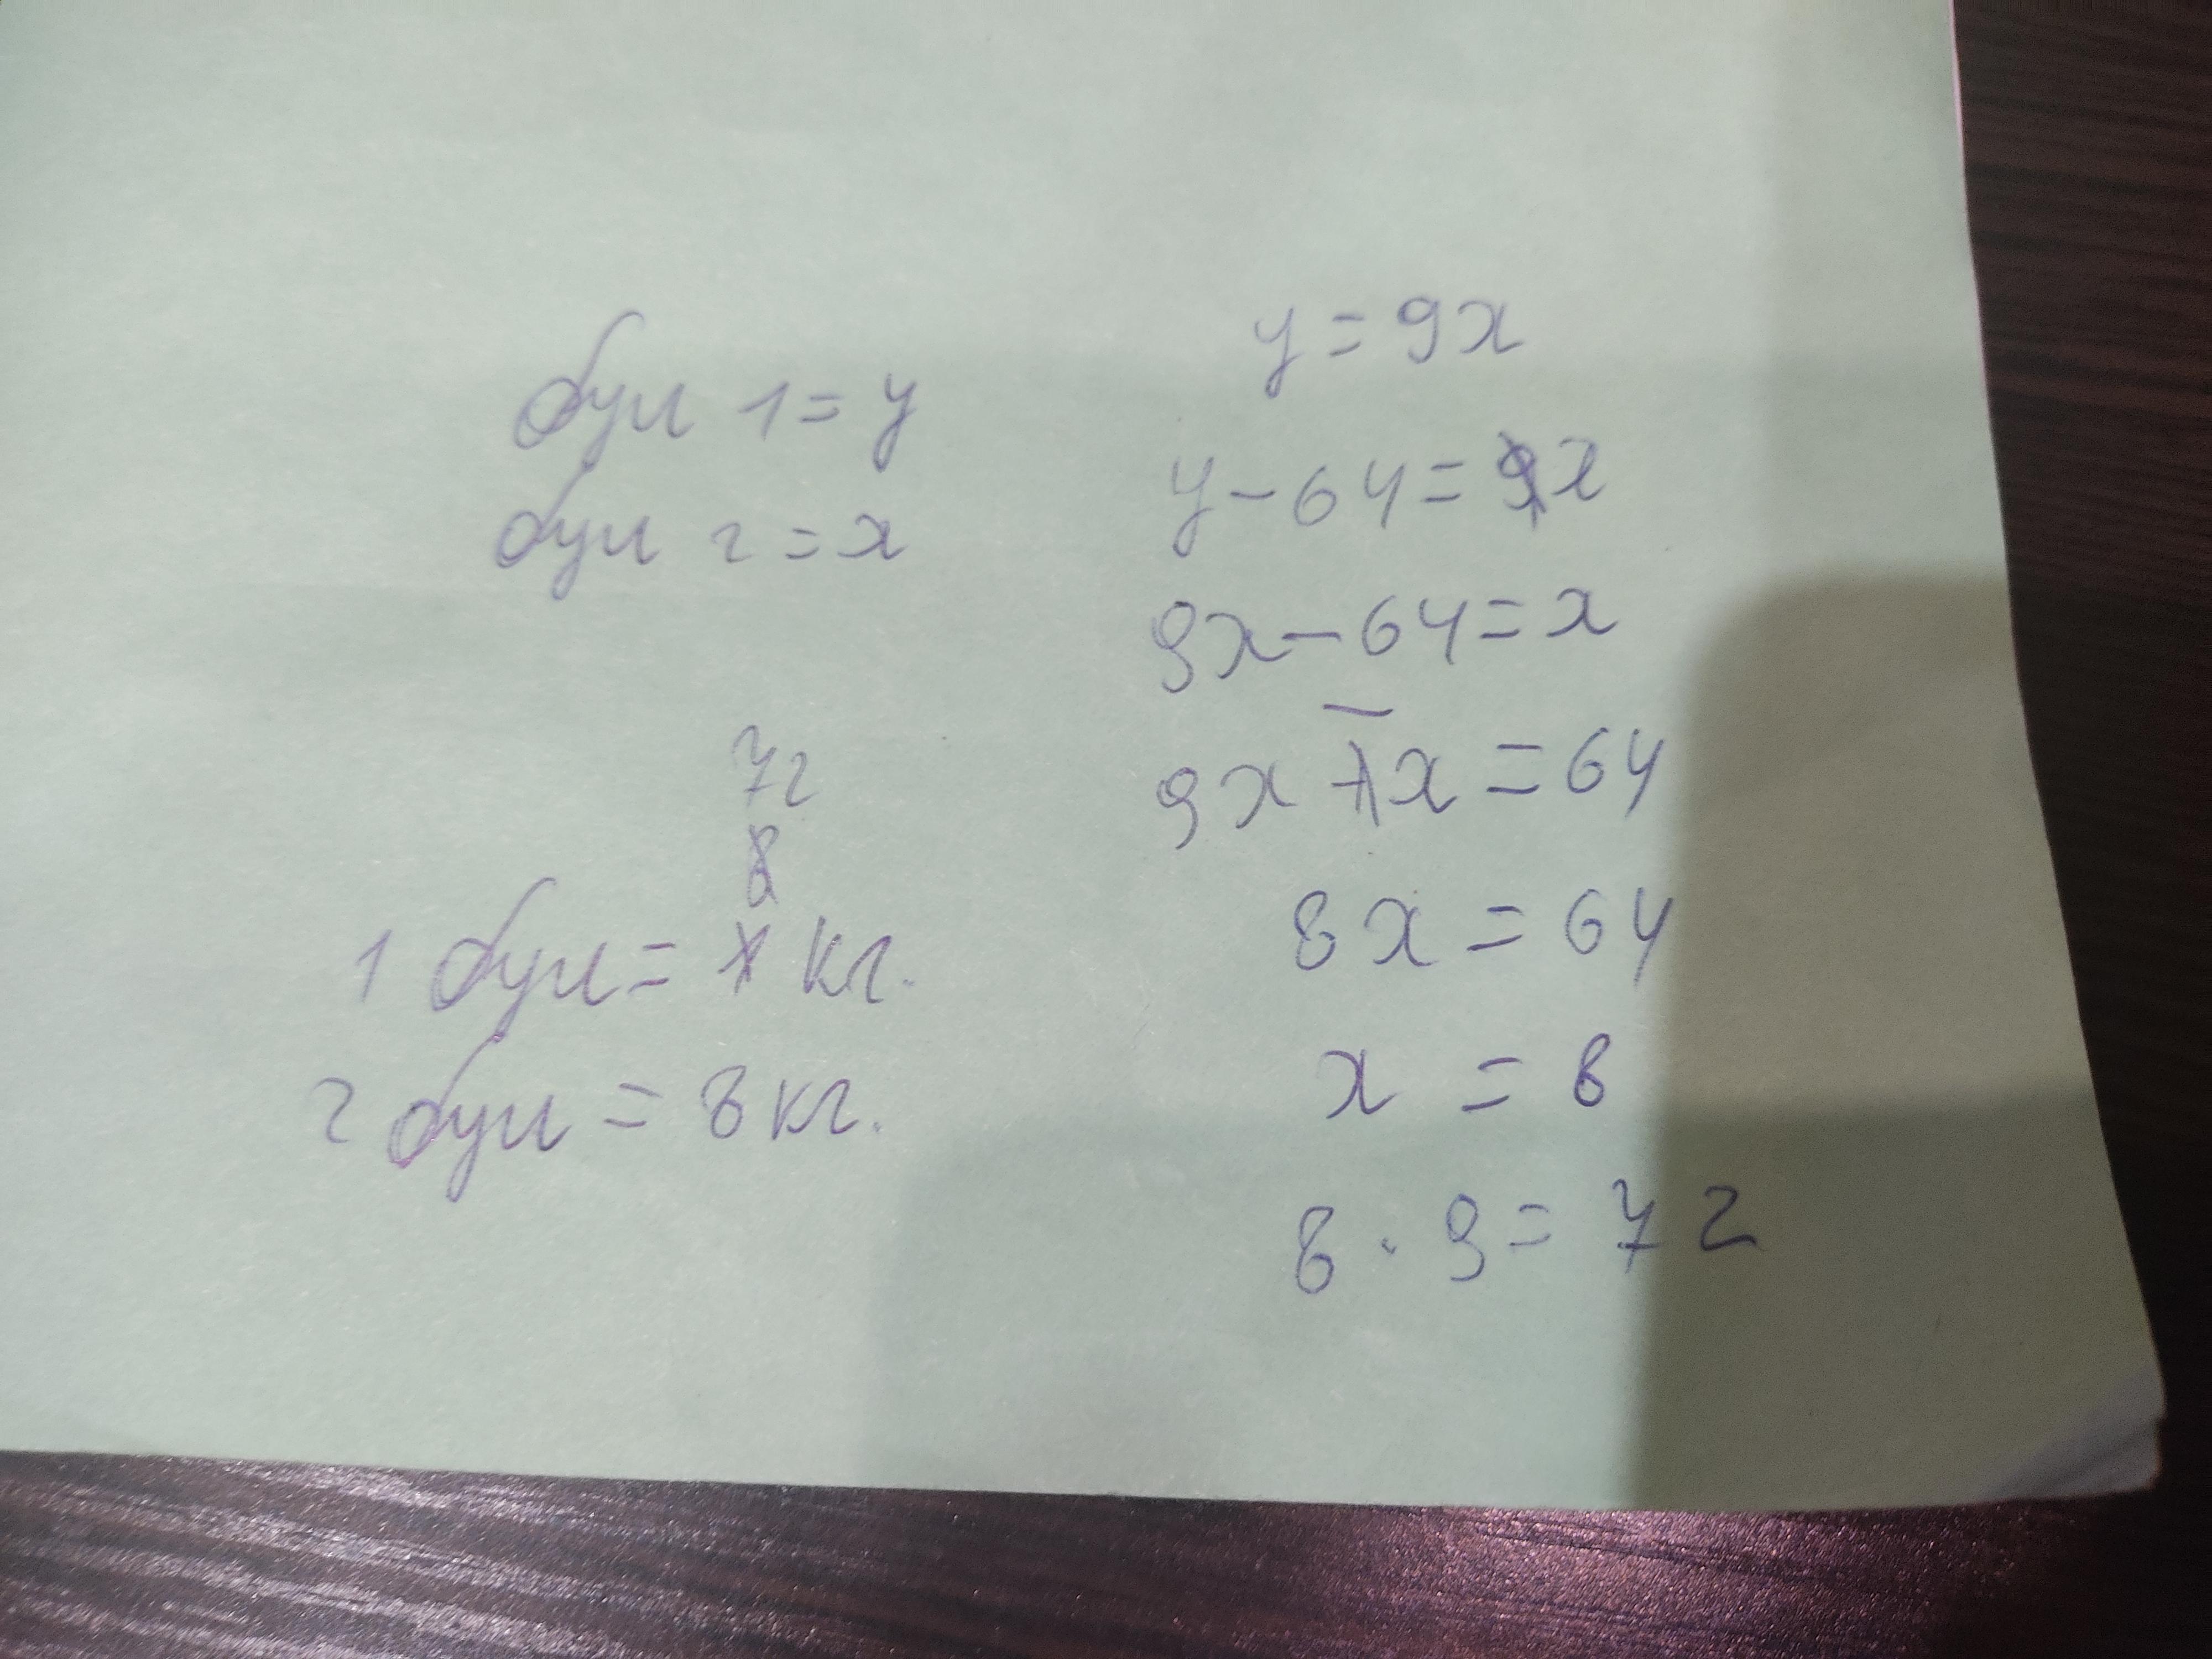 бул 1 = y
бул 2 = x
72
1 бул = кг.
2 бул = 8 кг.
y = 9x
y - 64 = x
9x - 64 = x
9x - x = 64
8x = 64
x = 8
8 · 9 = 72